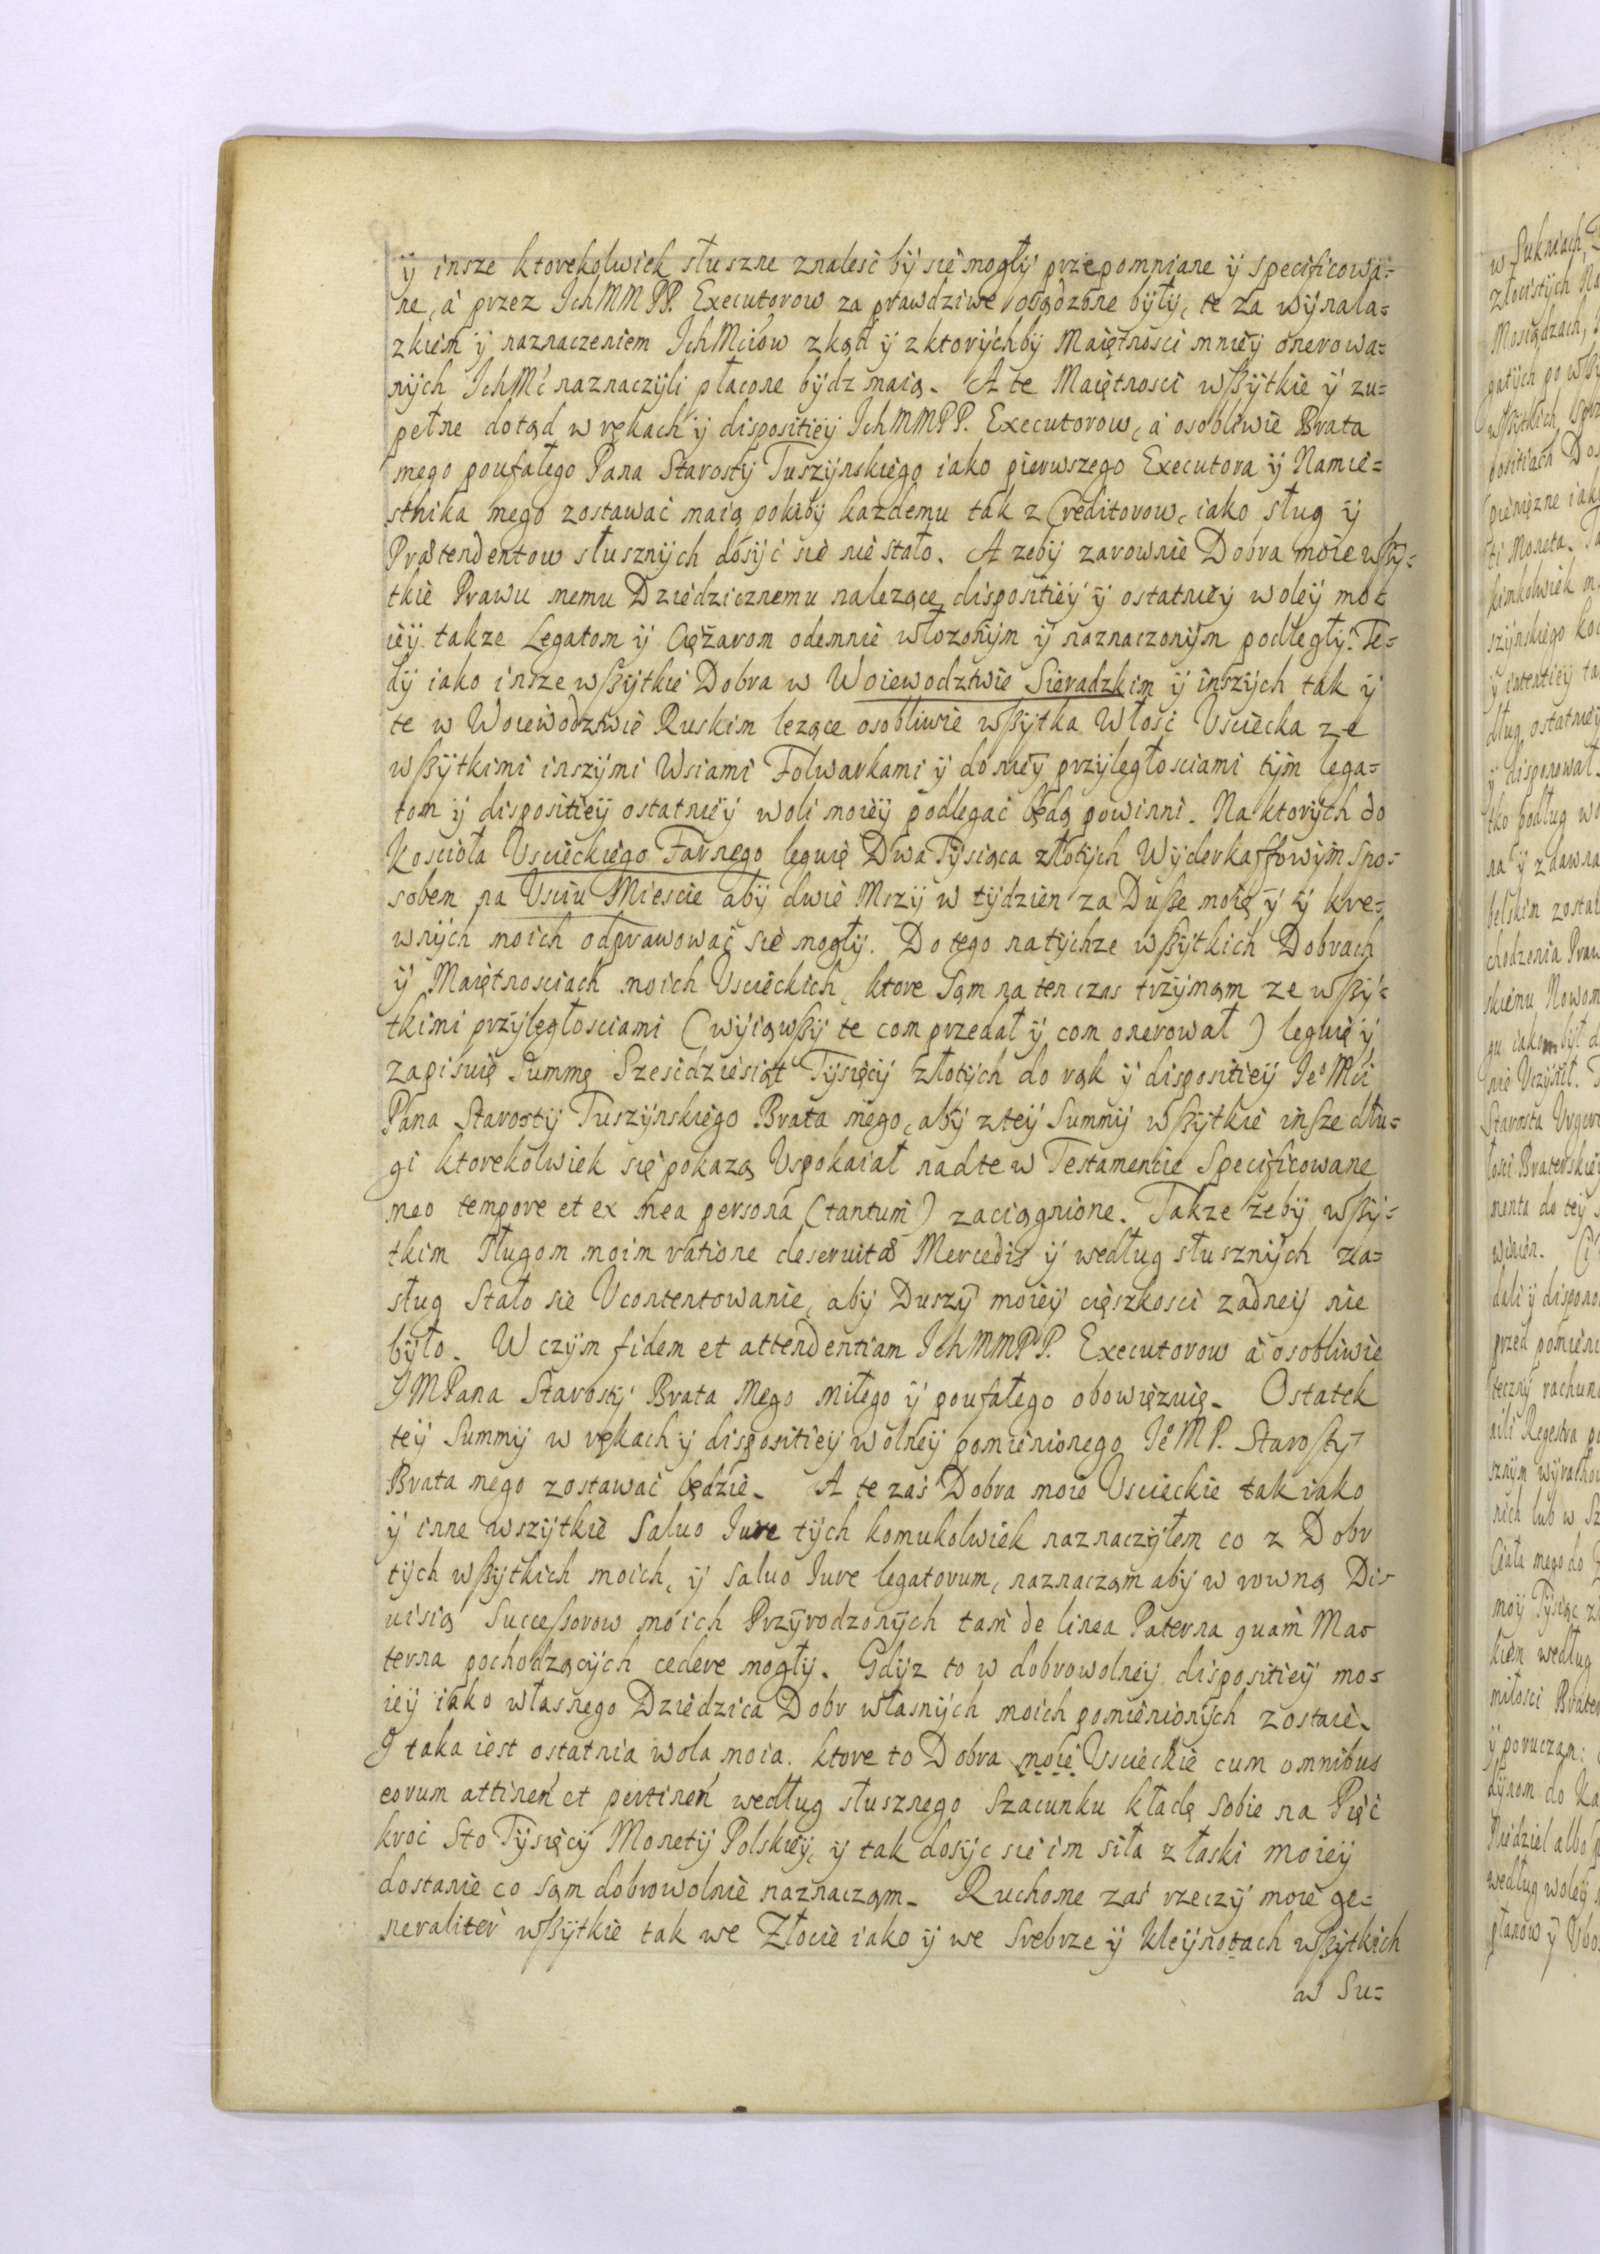 ÿ insze ktorekolwiek słuszne znalesć bÿ się mogłÿ przepomniane ÿ specificowa=
ne, á przez IchMMPP. Executorow za prawdziwe osądzone bÿłÿ, te za wÿnala=
zkiem ÿ naznaczeniem IchMćiow zkąd ÿ z ktorÿchbÿ Maiętnosci mnieÿ onerowa=
nÿch IchMć naznaczÿli płacone bÿdz maią. A te Maiętnosci wßÿtkie ÿ zu=
pełne dotąd w rękach ÿ dispositieÿ IchMMPP. Executorow, á osobliwie Brata
mego poufałego Pana Starostÿ Tuszÿnskiego iako pierwszego Executora ÿ Namie=
stnika mego zostawać maią pokibÿ kazdemu tak z Creditorow, iako sług ÿ
Prætendentow słusznÿch dosÿć się nie stało. A zebÿ zarownie Dobra moie wßÿ=
tkie Prawu memu Dziedzicznemu nalezące dispositieÿ ÿ ostatnieÿ woleÿ mo=
ieÿ takze Legatom ÿ Cięžarom odemnie włozonÿm ÿ naznaczonÿm podległÿ. Te=
dÿ iako insze wßÿtkie Dobra w Woiewodztwie Sieradzkim ÿ inszÿch tak ÿ
te w Woiewodztwie Ruskim lezące osobliwie wßÿtka Włość Vsciecka ze
wßÿtkimi inszÿmi Wsiami Folwarkami ÿ do nieÿ przÿległosciami tÿm lega=
tom ÿ dispositieÿ ostatnieÿ woli moieÿ podlegać będą powinni. Na ktorÿch do
Koscioła Vscieckiego Farnego leguię Dwa Tÿsiąca złotÿch Wÿderkaffowÿm spo=
sobem na Vsciu Miescie abÿ dwie Mszÿ w tÿdzien za Duße moię ÿ tÿ kre=
wnÿch moich odprawować się mogłÿ. Do tego na tÿchze wßÿtkich Dobrach
ÿ Maiętnosciach moich Vscieckich, ktore sam na ten czas trzÿmam ze wßÿ=
tkimi przÿległosciami (wÿiąwßÿ te com przedał ÿ com onerował) leguię ÿ
zapisuię summę Szescdziesiąt Tÿsięcÿ złotÿch do rąk ÿ dispositieÿ Ie°Mći
Pána Starostÿ Tuszÿnskiego Brata mego, abÿ z teÿ Summÿ wßÿtkie inße dłu=
gi ktorekolwiek się pokazą Vspokaiał nad te w Testamencie Specificowane
meo tempore et ex mea persona (tantum) zaciągnione. Takze žebÿ wßÿ=
tkim sługom moim ratione deservitæ Mercedis ÿ według słusznÿch za=
sług Stało się Vcontentowanie, abÿ Duszÿ moieÿ cięszkosci zadneÿ nie
bÿło. W czÿm fidem et attendentiam IchMMPP. Executorow á osobliwie
IMPana Starostÿ Brata Mego miłego ÿ poufałego obowięzuię. Ostatek
teÿ Summÿ w rękach ÿ dispositieÿ wolneÿ pomienionego Ie°MP. Starostÿ
Brata mego zostawać będzie. A te zaś Dobra moie Vscieckie tak iako
ÿ inne wszÿtkie Salvo Iure tÿch komukolwiek naznaczÿłem co z Dobr
tÿch wßÿtkich moich, ÿ salvo Iure legatorum, naznaczam abÿ w rowną Di=
uisią Successorow moich Przÿrodzonÿch tam de linea Paterna quam Ma=
terna pochodzącÿch cedere mogłÿ. Gdÿz to w dobrowolneÿ dispositieÿ mo=
ieÿ iako własnego Dziedzica Dobr własnÿch moich pomienionÿch zostaie.
I taka iest ostatnia wola moia. ktore to Dobra moie Vscieckie cum omnibus
eorum attineń et pertineń według słusznego szacunku kładę sobie na Pięć
kroć Sto Tÿsięcÿ Monetÿ Polskieÿ, ÿ tak dosÿc się im siła z łaski moieÿ
dostanie co sam dobrowolnie naznaczam. Ruchome zaś rzeczÿ moie ge=
neraliter wßÿtkie tak we Złocie iako ÿ we Srebrze ÿ kleÿnotach wßÿtkich
w Su=